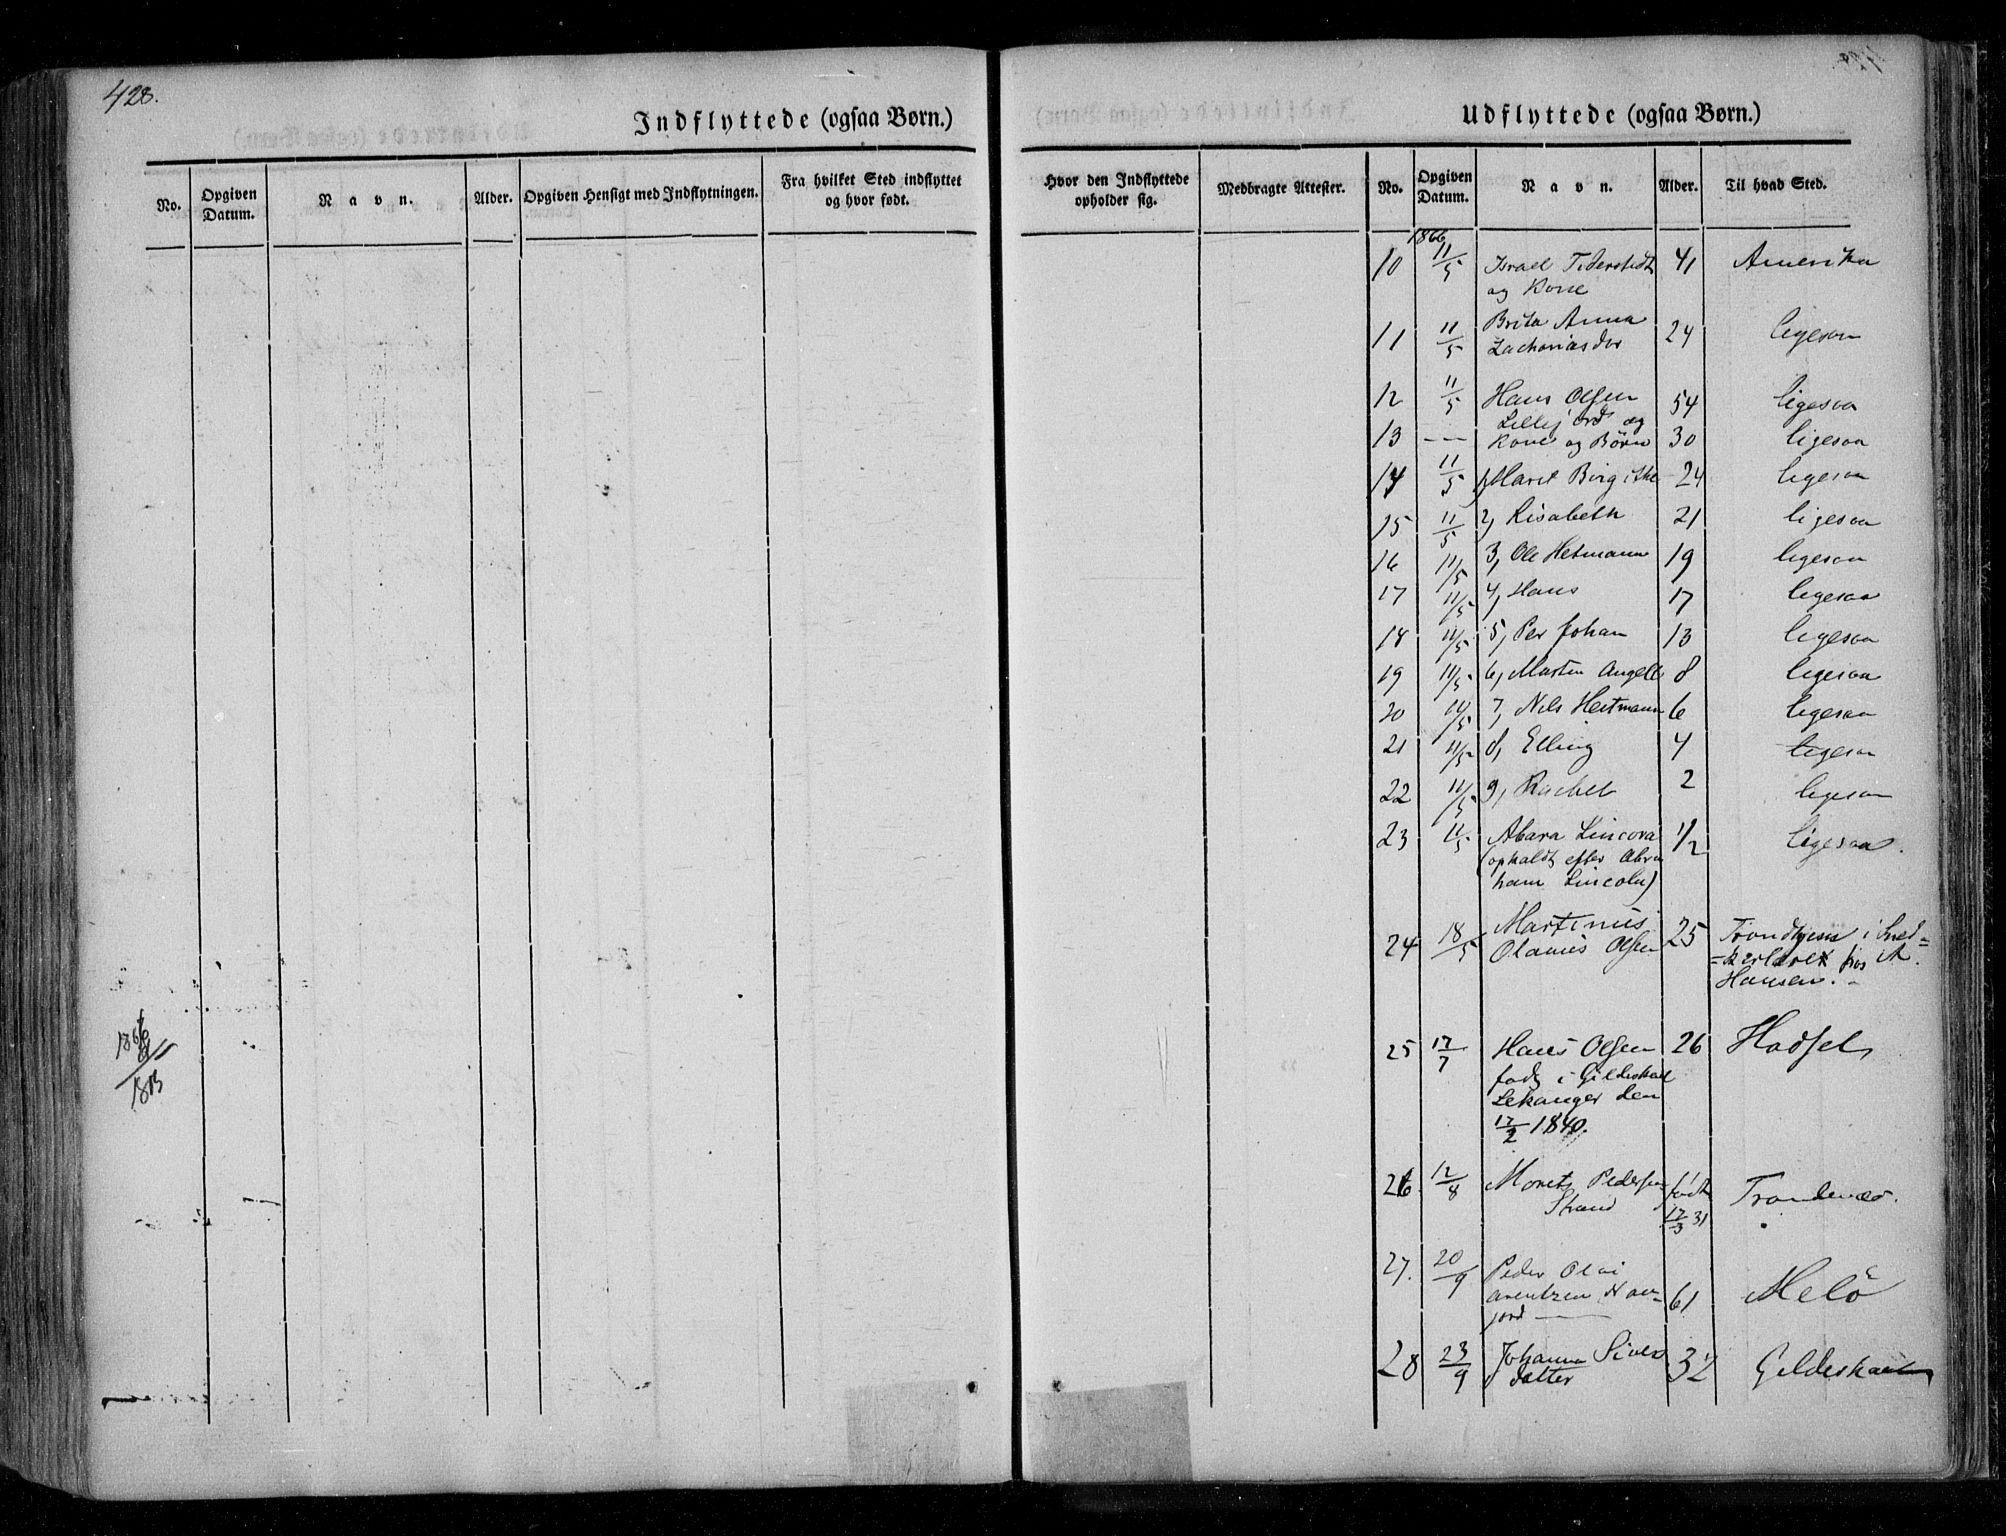 428.
Indflyttede (ogsaa Børn.)
No.
Opgiven Datum.
Navn.
Alder.
Opgiven Hensigt med Indflytningen.
Fra hvilket Sted indflyttet og hvor født.
1866
1813
Udflyttede (ogsaa Børn.)
Hvor den Indflyttede opholder sig.
Medbragte Attester.
No.
Opgiven Datum.
Navn.
Alder.
Til hvad Sted.
1866
10 11/5 Israel Tiderstedt 41 Amerika
og Kone
11 11/5 Brita Anna 24 ligesaa
Zachariasdr
12 11/5 Hans Olsen 54 ligesaa
Lillejord og
13 — — Kone og Børn 30 ligesaa
14 11/5 1, Maret Birgithe 24 ligesaa
15 11/5 2, Lisabeth 21 ligesaa
16 11/5 3, Ole Hetmann 19 ligesaa
17 11/5 4, Hans 17 ligesaa
18 11/5 5, Per Johan 13 ligesaa
19 11/5 6, Martin Angell 8 ligesaa
20 11/5 7, Nils Heitmann 6 ligesaa
21 11/5 8, Elling 4 ligesaa
22 11/5 9, Rachel 2 ligesaa
23 11/5 Abara Lincova 1/2 ligesaa.
(opkaldt efter Abra
ham Lincoln)
24 18/5 Martinus 25 Trondhjem i Sned=
Olanus Olsen =kerlære hos A.
Hansen.
25 17/7 Hans Olsen 26 Hadsel
født i Gildeskaal
Lekanger den
17/2 1840.
26 12/8 Morets Pedersen født Trondenæs.
Strand 17/3 31
27. 20/9 Peder Olai
Arentzen Hav= 61 Melö
jord
28 23/9 Johanna Sivers 32 Gildeskaal
datter